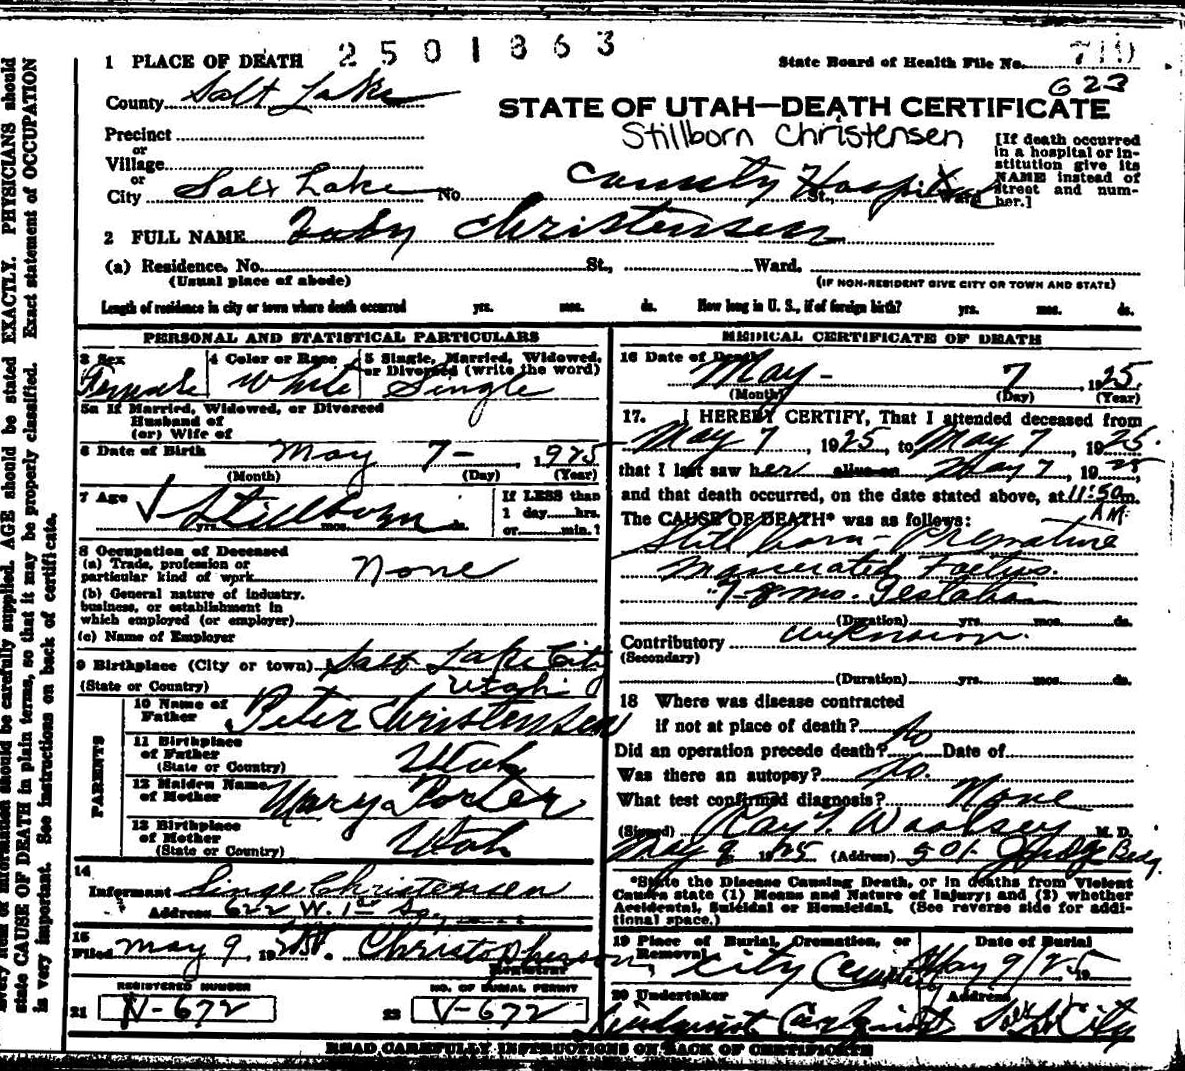 2501863
1 PLACE OF DEATH
State Board of Health File No. 710
623
County Salt Lake
STATE OF UTAH—DEATH CERTIFICATE
Stillborn Christensen
Precinct
or
Village
or
City Salt Lake No. County Hospital St., Ward
[If death occurred in a hospital or institution give its NAME instead of street and number.]
2 FULL NAME Baby Christensen
(a) Residence, No. St., Ward.
(Usual place of abode) (IF NON-RESIDENT GIVE CITY OR TOWN AND STATE)
Length of residence in city or town where death occurred yrs. mos. ds. How long in U. S., if of foreign birth? yrs. mos. ds.
PERSONAL AND STATISTICAL PARTICULARS
3 Sex 4 Color or Race 5 Single, Married, Widowed, or Divorced (write the word)
Female White Single
5a If Married, Widowed, or Divorced
Husband of
(or) Wife of
6 Date of Birth May 7 - , 1925
(Month) (Day) (Year)
7 Age Stillborn
yrs. mos. ds.
If LESS than
1 day hrs.
or min.?
8 Occupation of Deceased
(a) Trade, profession or
particular kind of work None
(b) General nature of industry,
business, or establishment in
which employed (or employer)
(c) Name of Employer
9 Birthplace (City or town) Salt Lake City
(State or Country) Utah
PARENTS
10 Name of
Father Peter Christensen
11 Birthplace
of Father
(State or Country) Utah
12 Maiden Name
of Mother Mary Porter
13 Birthplace
of Mother
(State or Country) Utah
14
Informant Christensen
Address 622 W. 1st So.
15
Filed May 9 192 Christopherson
Registrar
REGISTERED NUMBER NO. OF BURIAL PERMIT
21 N-672 22 V-672
MEDICAL CERTIFICATE OF DEATH
16 Date of Death
May - 7 , 1925.
(Month) (Day) (Year)
17. I HEREBY CERTIFY, That I attended deceased from
May 7 1925, to May 7, 1925.
that I last saw her alive on May 7, 1925
and that death occurred, on the date stated above, at 11:50 m.
AM.
The CAUSE OF DEATH* was as follows:
Still born - Premature
Macerated Foetus.
7-8 mo. Gestation
(Duration) yrs. mos. ds.
Contributory unknown.
(Secondary)
(Duration) yrs. mos. ds.
18 Where was disease contracted
if not at place of death? No
Did an operation precede death? Date of
Was there an autopsy? No.
What test confirmed diagnosis? None
(Signed) Ray T. Woolsey M. D.
May 9 1925 (Address) 501 Judge Bldg
*State the Disease Causing Death, or in deaths from Violent
Causes state (1) Means and Nature of Injury; and (2) whether
Accidental, Suicidal or Homicidal. (See reverse side for additional space.)
19 Place of Burial, Cremation, or Removal Date of Burial
City Cemetery May 9/25 19
20 Undertaker Address
Salt L City
READ CAREFULLY INSTRUCTIONS ON BACK OF CERTIFICATE
should be carefully supplied. AGE should be stated EXACTLY. PHYSICIANS should
state CAUSE OF DEATH in plain terms, so that it may be properly classified. Exact statement of OCCUPATION
is very important. See instructions on back of certificate.